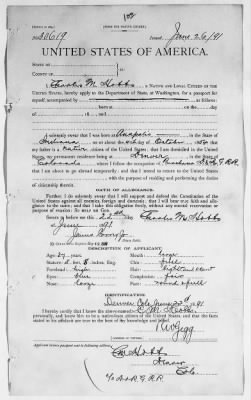 No. 30619
Issued June 26/91
UNITED STATES OF AMERICA.
STATE OF
COUNTY OF
I, Charles M. Hobbs, a NATIVE AND LOYAL CITIZEN OF THE
UNITED STATES, hereby apply to the Department of State, at Washington, for a passport for
myself, accompanied by
as follows:
I solemnly swear that I was born at Annapolis in the State of
Indiana, on or about the day of October, 18
that my father is a native citizen of the United States; that I am domiciled in the United
States, my permanent residence being at Denver in the State of
Colorado, where I follow the occupation of
that I am about to go abroad temporarily; and that I intend to return to the United States
with the purpose of residing and performing the duties
of citizenship therein.
OATH OF ALLEGIANCE.
Further, I do solemnly swear that I will support and defend the Constitution of the
United States against all enemies, foreign and domestic; that I will bear true faith and alle-
giance to the same; and that I take this obligation freely, without any mental reservation or
purpose of evasion: So help me God.
Sworn to before me this 22nd day
Charles M Hobbs
of June 1891
DESCRIPTION OF APPLICANT.
Age: 27 years.
Mouth: large
Stature: 5 feet, 8 inches, Eng.
Chin:
Forehead: high
Hair: light
Eyes: blue
Complexion: fair
Nose: large
Face: round & full
IDENTIFICATION.
Denver Colo June 22d 1891
I hereby certify that I know the above-named C M Hobbs
personally, and know him to be a native-born citizen of the United States, and that the facts stated
in his affidavit are true to the best of my knowledge and belief.
Applicant desires passport sent to following address:
C M Hobbs
Denver
Colo